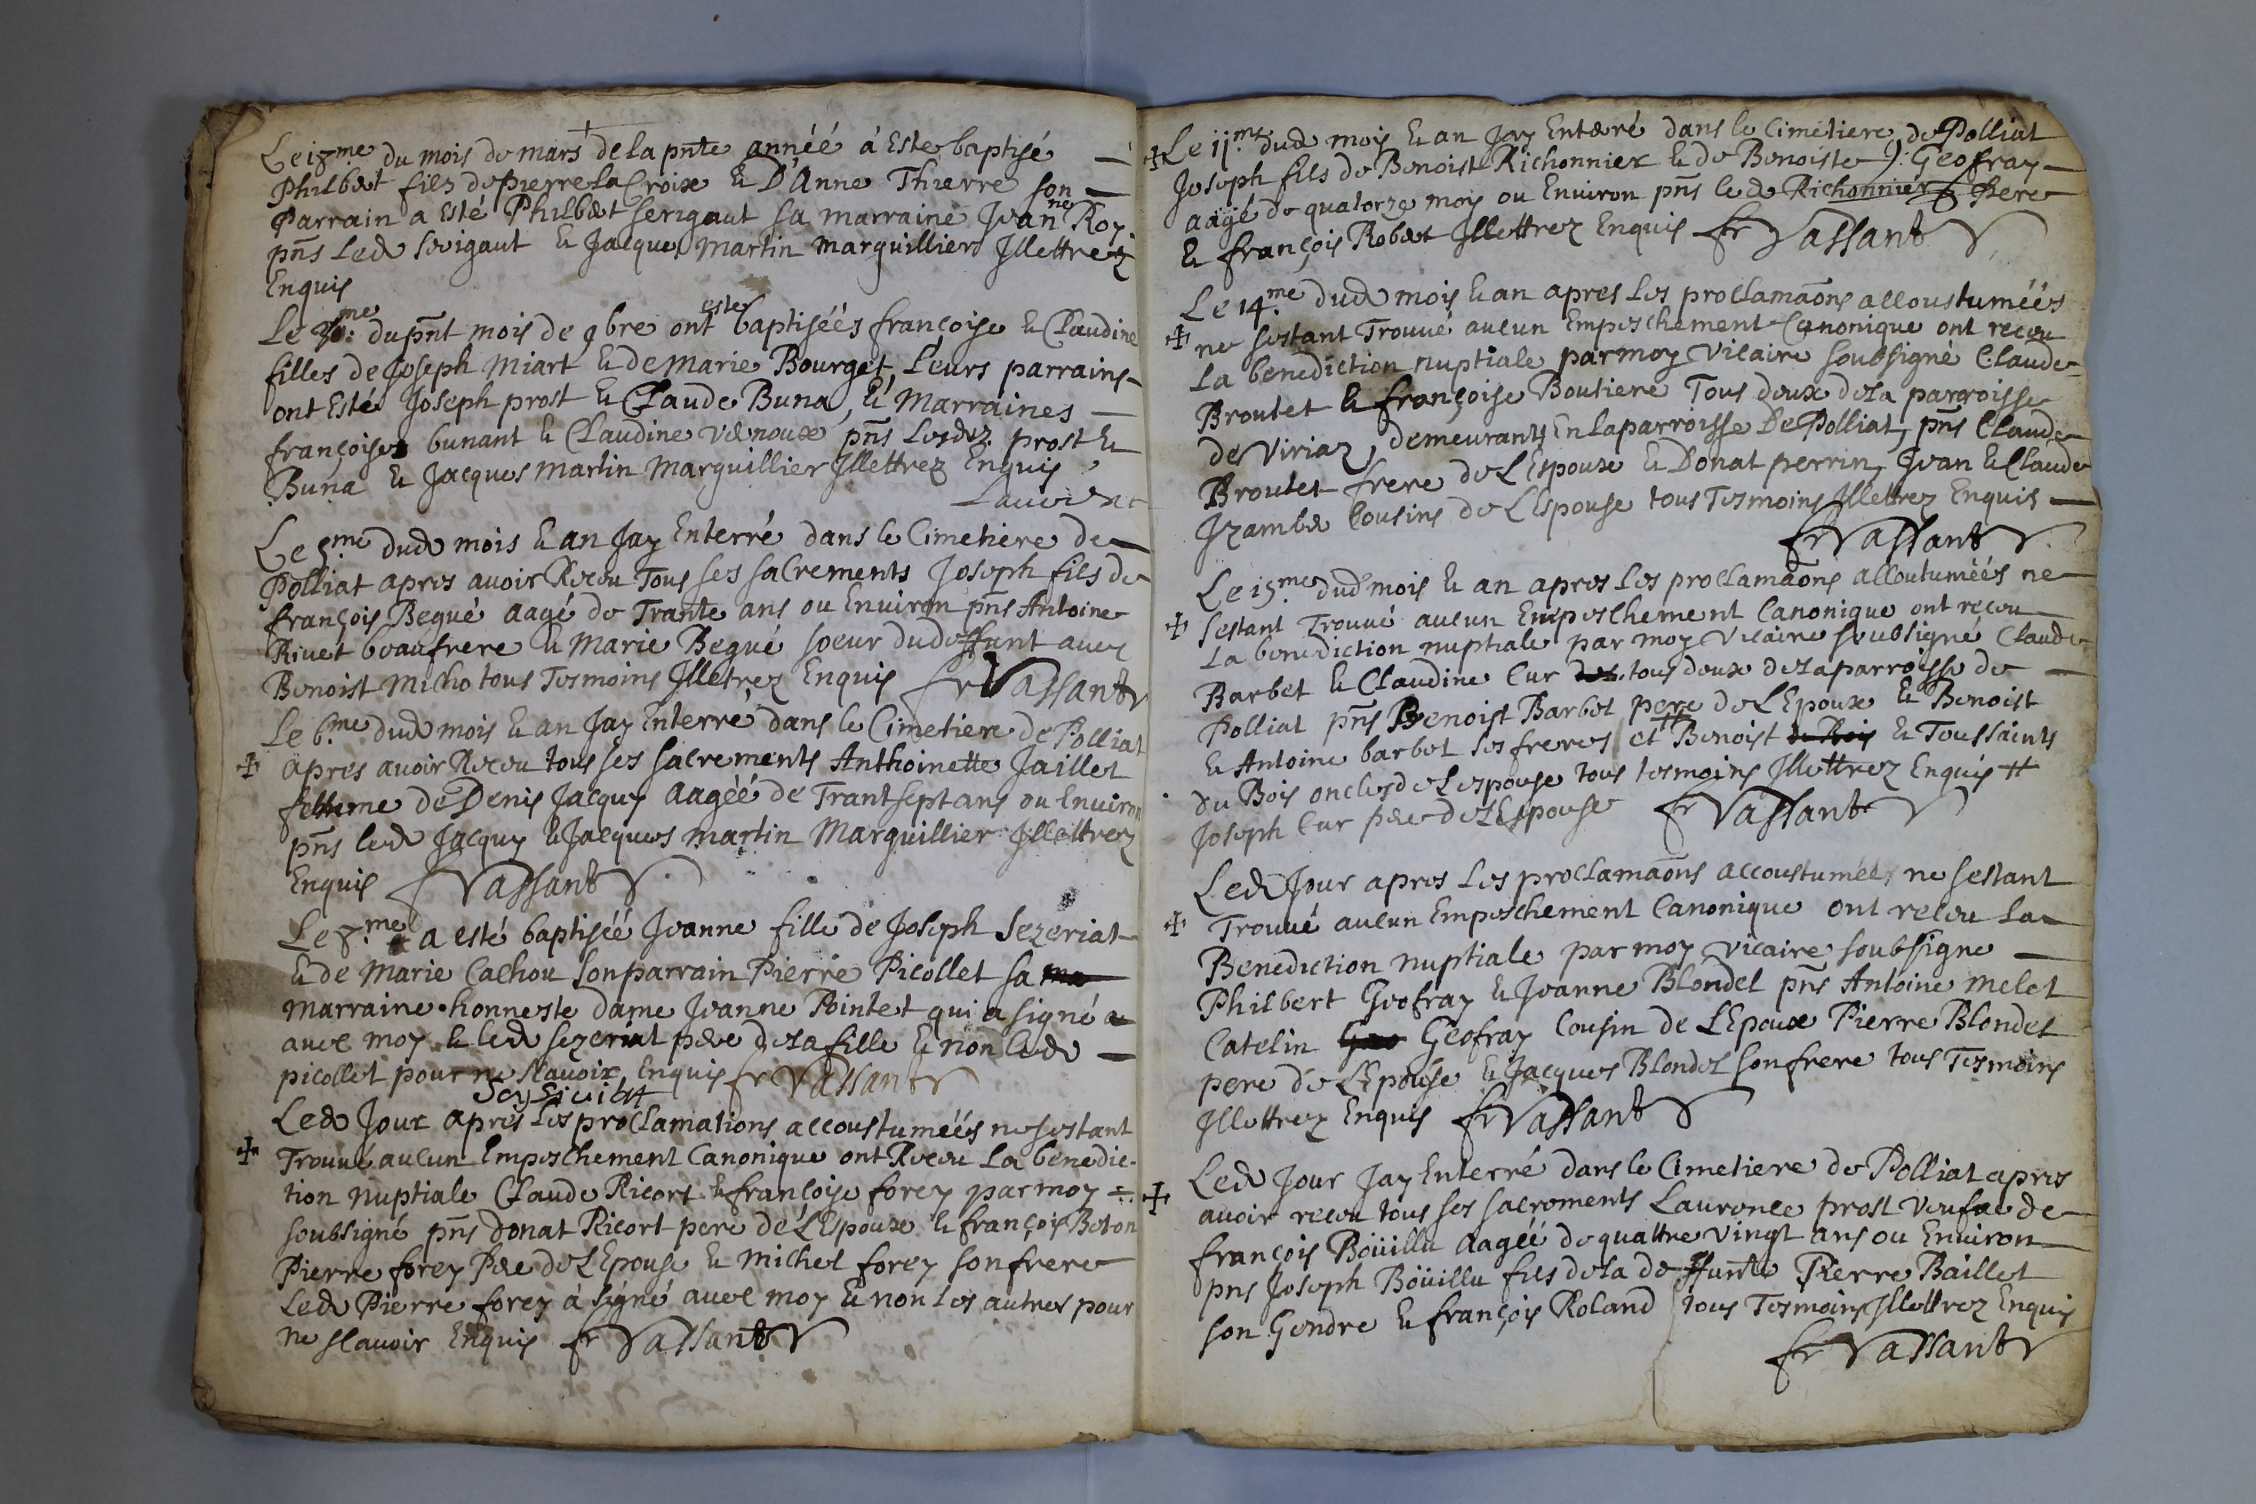 Le 18.me du mois de mars de la pnte année à Esté baptisé
Philbert filz de pierre La Croix & D'Anne Thierre son
Parrain a Esté Philbert serigaut sa marraine Jeanne Roy
pns Led serigaut & Jacques Martin marguilliers Illettrez
Enquis
Le 30.me du pnt mois de 9bre ont estes baptisées françoise & Claudine
filles de Joseph Miart & de Marie Bourget, Leurs parrains
ont Esté Joseph prost & Claude Buna, & Marraines
françoise bunant & Claudine Venoux pns Lesdz prost &
Buna & Jacques Martin Marguillier Illettrez Enquis
Le 5.me dud mois & an Jay Enterré dans le Cimetiere de
Polliat apres auoir Receu Tous ses sacrements Joseph fils de
françois Begué aagé de Trante ans ou Enuiron pns Antoine
Riuet beaufrere & Marie Begué soeur dud deffunt auec
Benoist Micho tous Tesmoins Illetrez Enquis fr Vassant
Le 6.me dud mois & an Jay Enterré dans le Cimetiere de Polliat
apres auoir Receu tous ses sacrements Anthoinette Jaillet
femme de Denis Jacquy aagéé de Trant sept ans ou Enuiron
pns led Jacquy & Jacques Martin Marguillier Illettrez
Enquis fr Vassant
Le 8.me a esté baptiséé Jeanne fille de Joseph Sezeriat
& de Marie Cachou son parrain Pierre Picollet sa
marraine honneste dame Jeanne Pointet qui a signé
auec moy & led sezeriat pere de la fille & non led
picollet pour ne scauoir Enquis fr Vassant
Led Jour apres Les proclamations accoustuméés ne sestant
Trouué aucun Empeschement Canonique ont Receu La benedic-
tion nuptiale Claude Ricort & françoise forey par moy
soubsigné pns donat Ricort pere de L'Espoux & françois Beton
Pierre forey Pere de L'Epouse & Michel forey son frere
Led Pierre forey à signé auec moy & non les autres pour
ne scauoir Enquis fr Vassant
Le 11.me dud mois & an Jay Enterré dans le Cimetiere de Polliat
Joseph fils de Benoist Richonnier & de Benoiste Geofray
aagé de quatorze mois ou Enuiron pns led Richonnier Pere
& françois Robert Illettrez Enquis fr Vassant
Le 14.me dud mois & an apres Les proclamaons accoustuméés
ne sestant Trouué aucun Empeschement Canonique ont receu
La benediction nuptiale par moy Vicaire soubsigné Claude
Broutet & françoise Boutiere Tous deux de la parroisse
de Viriaz, demeurants En la parroisse De Polliat, pns Claude
Broutet frere de L'Espoux & Donat perrin, Jean & Claude
Izambe Cousins de L'Espouse tous Tesmoins Illettrez Enquis
fr Vassant
Le 15.me dud mois & an apres Les proclamaons accoutuméés ne
sestant Trouué aucun Empeschement Canonique ont receu
La benediction nuptiale par moy Vicaire soubsigné Claude
Barbet & Claudine Cur tous deux de la parroisse de
Polliat pns Benoist Barbet pere de L'Epoux & Benoist
& Antoine barbet ses freres et Benoist & Toussaints
du Bois oncles de Lespouse tous tesmoins Illettrez Enquis #
Joseph Cur pere de L'Espouse fr Vassant
Led Jour apres Les proclamaons accoustuméés ne sestant
Trouué aucun Empeschement Canonique ont receu La
Benediction nuptiale par moy Vicaire soubsigné
Philbert Geofray & Jeanne Blondel pns Antoine Melet
Catelin Geofray Cousin de L'Epoux Pierre Blondel
pere de L'Epouse & Jacques Blondel son frere tous Tesmoins
Illettrez Enquis fr Vassant
Led Jour Jay Enterré dans le Cimetiere de Polliat apres
auoir receu tous ses sacrements Laurence prost Veufue de
françois Böüillu aagéé de quattre vingt ans ou Enuiron
pns Joseph Böüillu fils de la deffunte Pierre Baillet
son Gendre & françois Roland tous Tesmoins Illettrez Enquis
fr Vassant